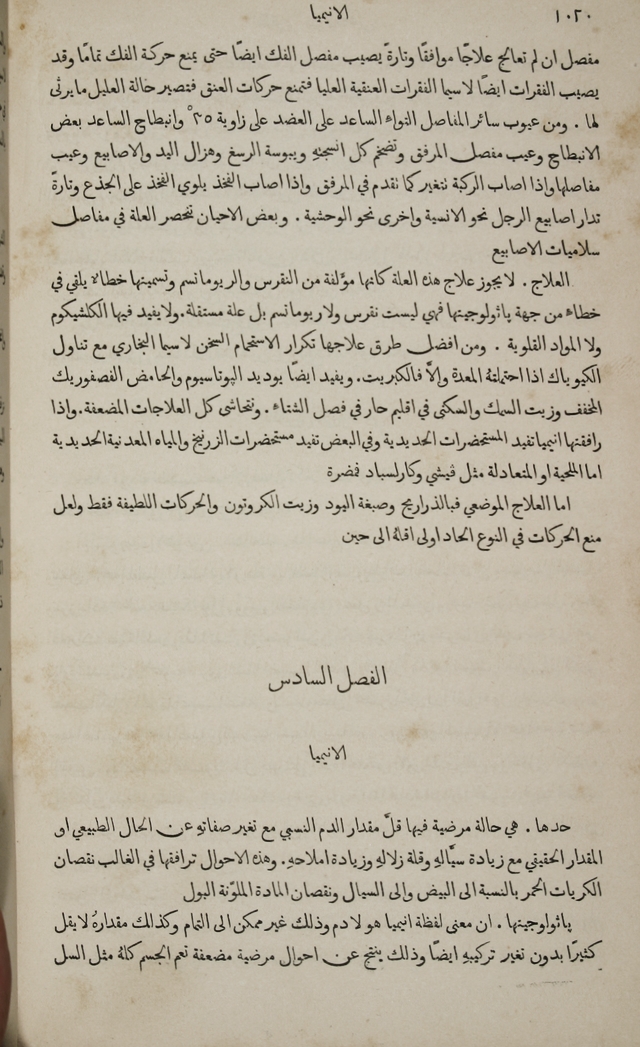 ١٠٢٠
الانيميا
مفصل ان لم تعالج علاجًا موافقًا وتارةً يصيب مفصل الفك ايضًا حتى يمنع حركة الفك تمامًا وقد
يصيب الفقرات ايضًا لاسيما الفقرات العنقية العليا فتمنع حركات العنق فتصير حالة العليل ما يرثى
لها . ومن عيوب سائر المفاصل التواء الساعد على العضد على زاوية ٢٥° وانبطاح الساعد بعض
الانبطاج وعيب مفصل المرفق وتضخم كل انسجته ويبوسة الرسغ وهزال اليد والاصابيع وعيب
مفاصلها واذا اصاب الركبة نتغير كما نقدم في المرفق واذا اصاب الفخذ يلوي الفخذ على الجذع وتارةً
تدار اصابيع الرجل نحو الانسية واخرى نحو الوحشية . وبعض الاحيان تنحصر العلة في مفاصل
سلاميات الاصابيع
العلاج . لا يجوز علاج هذه العلة كانها مؤلفة من النقرس والريوماتسم وتسميتها خطاء يلقي في
خطاء من جهة پاثولوجيتها فهي ليست نقرس ولا ريوماتسم بل علة مستقلة. ولا يفيد فيها الكلشيكوم
ولا المواد القلوية . ومن افضل طرق علاجها تكرار الاستحمام السخن لاسيما البخاري مع تناول
الكيوباك اذا احتملتهُ المعدة والاَّ فالكبريت. ويفيد ايضًا يوديد الپوتاسيوم والحامض الفصفوريك
المخفف وزيت السمك والسكنى في اقليم حار في فصل الشتاء . ونتحاشى كل العلاجات المضعفة. واذا
رافقتها انيميا تفيد المستحضرات الحديدية وفي البعض تفيد مستحضرات الزرنيخ والمياه المعدنية الحديدية
اما الملحية او المتعادلة مثل فيشي وكارلسباد فمضرة
اما العلاج الموضعي فبالذراريح وصبغة اليود وزيت الكروتون والحركات اللطيفة فقط ولعل
منع الحركات في النوع الحاد اولى اقلهُ الى حين
الفصل السادس
الانيميا
حدها . هي حالة مرضية فيها قلَّ مقدار الدم النسبي مع تغير صفاته عن الحال الطبيعي او
المقدار الحقيقي مع زيادة سيَّاله وقلة زلاله وزيادة املاحه. وهذه الاحوال ترافقها في الغالب نقصان
الكريات الحمر بالنسبة الى البيض والى السيال ونقصان المادة الملوّنة البول
پاثولوجيتها . ان معنى لفظة انيميا هو لا دم وذلك غير ممكن الى التمام وكذلك مقدارهُ لا يقل
كثيرًا بدون تغير تركيبه ايضًا وذلك ينتج عن احوال مرضية مضعفة تعم الجسم كلهُ مثل السل